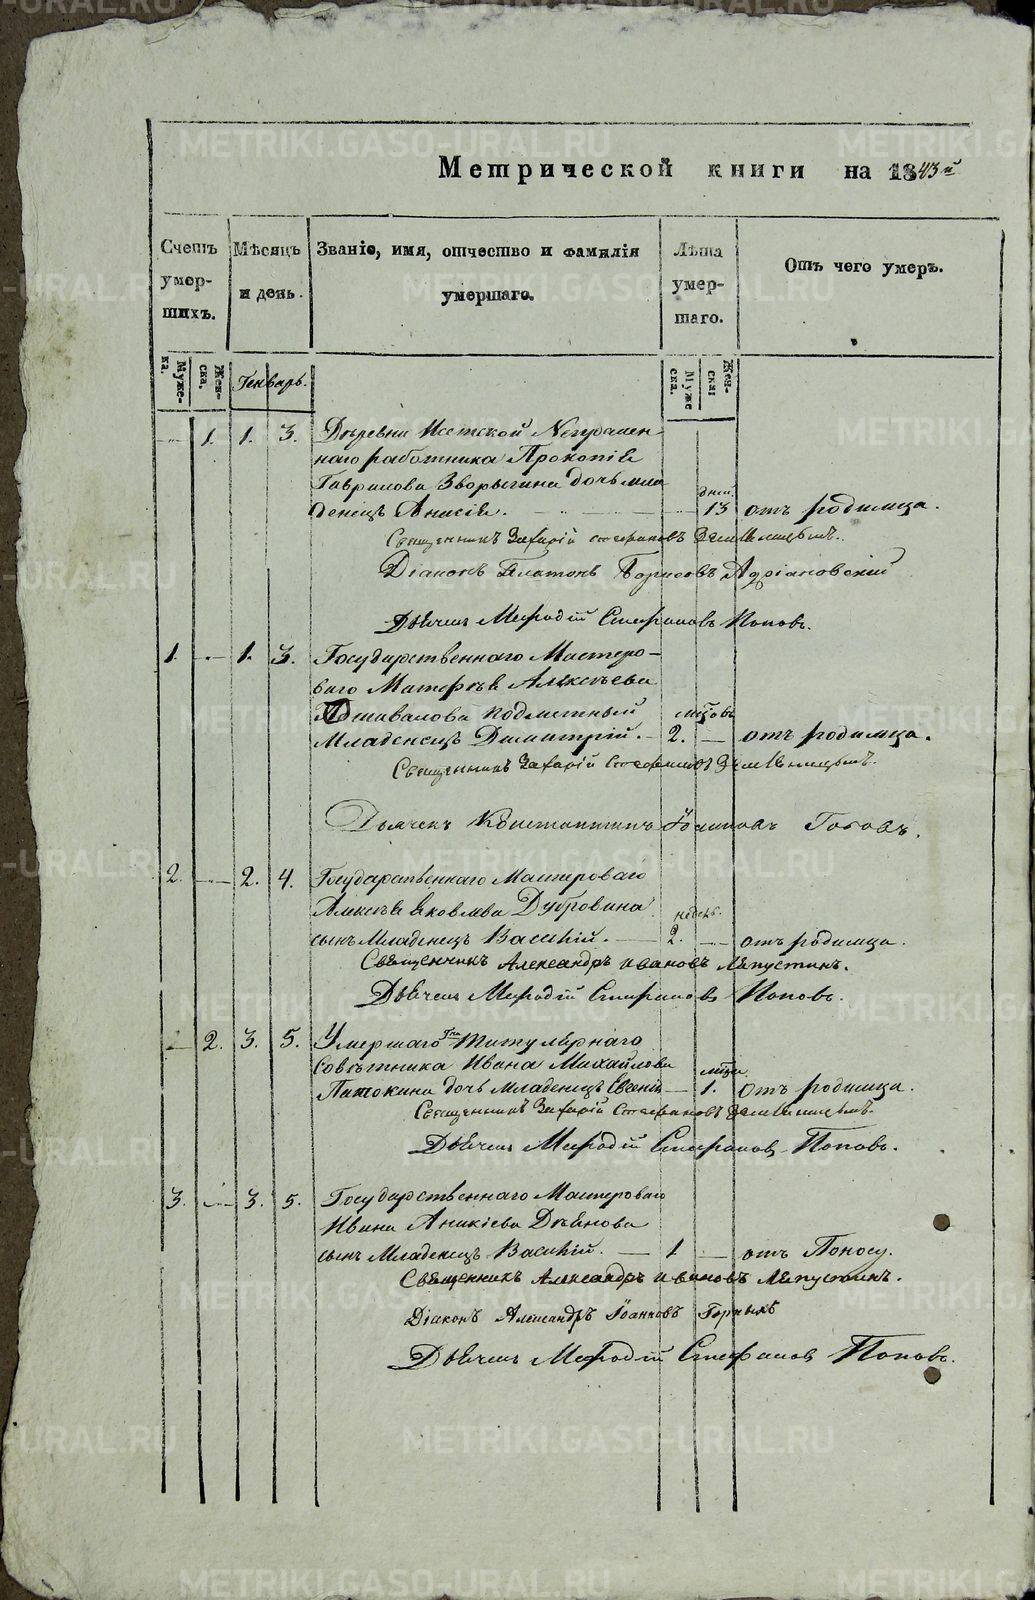 Метрической книги на 1843й
Счетъ умер- шихъ.
Мѣсяцъ и день.
Званіе, имя, отчество и фамилія умершаго.
Лѣта умер- шаго.
Отъ чего умеръ.
Муже- ка.
Жен- ска.
Генварь.
Муже ска.
Жен- ска:
1. 1. 3. Деревни Исетской Непремен-
наго работника Прокопія
Гаврилова Зворыгина дочь мла
денецъ Анисія. дней. 13 отъ родимца.
Священникъ Захарій Стефановъ
Діаконъ Платонъ Борисовъ Адріановскій
Дьячекъ Мефодій Стефановъ Поповъ.
1. 1. 3. Государственнаго Мастеро-
ваго Матфѣя Алексѣева
подметный
Младенецъ Димитрій. мцовъ 2. отъ родимца.
Священникъ Захарій Стефановъ
Дьячекъ Константинъ Іоанновъ
2. 2. 4. Гсударственнаго Мастероваго
Алексѣя Яковлева Дубровина
сынъ Младенецъ Василій. недель. 2. отъ родимца.
Священникъ Александръ Ивановъ Лепустинъ.
Дьячекъ Мефодій Стефановъ Поповъ.
2. 3. 5. Умершаго Титулярнаго
Совѣтника Ивана Михайлова
Патокина дочь младенецъ Евгенія мцa 1. отъ родимца.
Священникъ Захарій Стефановъ
Дьячекъ Мефодій Стефановъ Поповъ.
3. 3. 5. Государственнаго Мастероваго
Ивана Аникіева Деянова
сынъ Младенецъ Василій. 1. отъ Поносу.
Священникъ Александръ Ивановъ Лепустинъ.
Діаконъ Александръ Іоанновъ Горныхъ
Дьячекъ Мефодій Стефановъ Поповъ.
METRIKI.GASO-URAL.RU